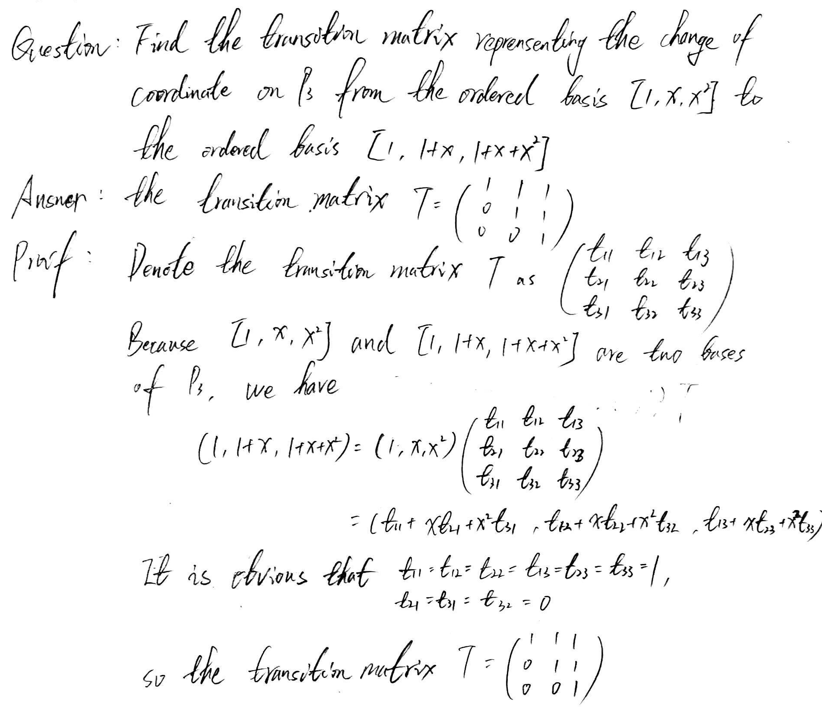 Question: Find the transition matrix reprensenting the change of
coordinate on P₃ from the ordered basis [1, x, x²] to
the ordered basis [1, 1+x, 1+x+x²]
Answer: the transition matrix T = ( 1 1 1
0 1 1
0 0 1 )
Proof: Denote the transition matrix T as ( t₁₁ t₁₂ t₁₃
t₂₁ t₂₂ t₂₃
t₃₁ t₃₂ t₃₃ )
Because [1, x, x²] and [1, 1+x, 1+x+x²] are two bases
of P₃, we have
(1, 1+x, 1+x+x²) = (1, x, x²) ( t₁₁ t₁₂ t₁₃
t₂₁ t₂₂ t₂₃
t₃₁ t₃₂ t₃₃ )
= (t₁₁ + xt₂₁ + x²t₃₁, t₁₂ + xt₂₂ + x²t₃₂, t₁₃ + xt₂₃ + x²t₃₃)
It is obvious that t₁₁ = t₁₂ = t₂₂ = t₁₃ = t₂₃ = t₃₃ = 1,
t₂₁ = t₃₁ = t₃₂ = 0
so the transition matrix T = ( 1 1 1
0 1 1
0 0 1 )